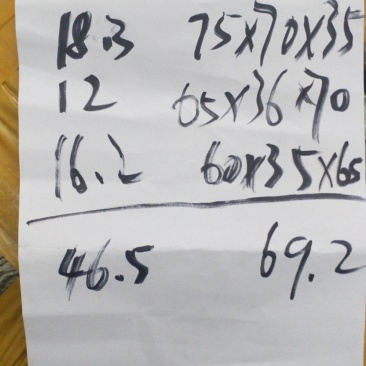 18.3 75x70x35
12 65x36x70
16.2 60x35x65
46.5 69.2